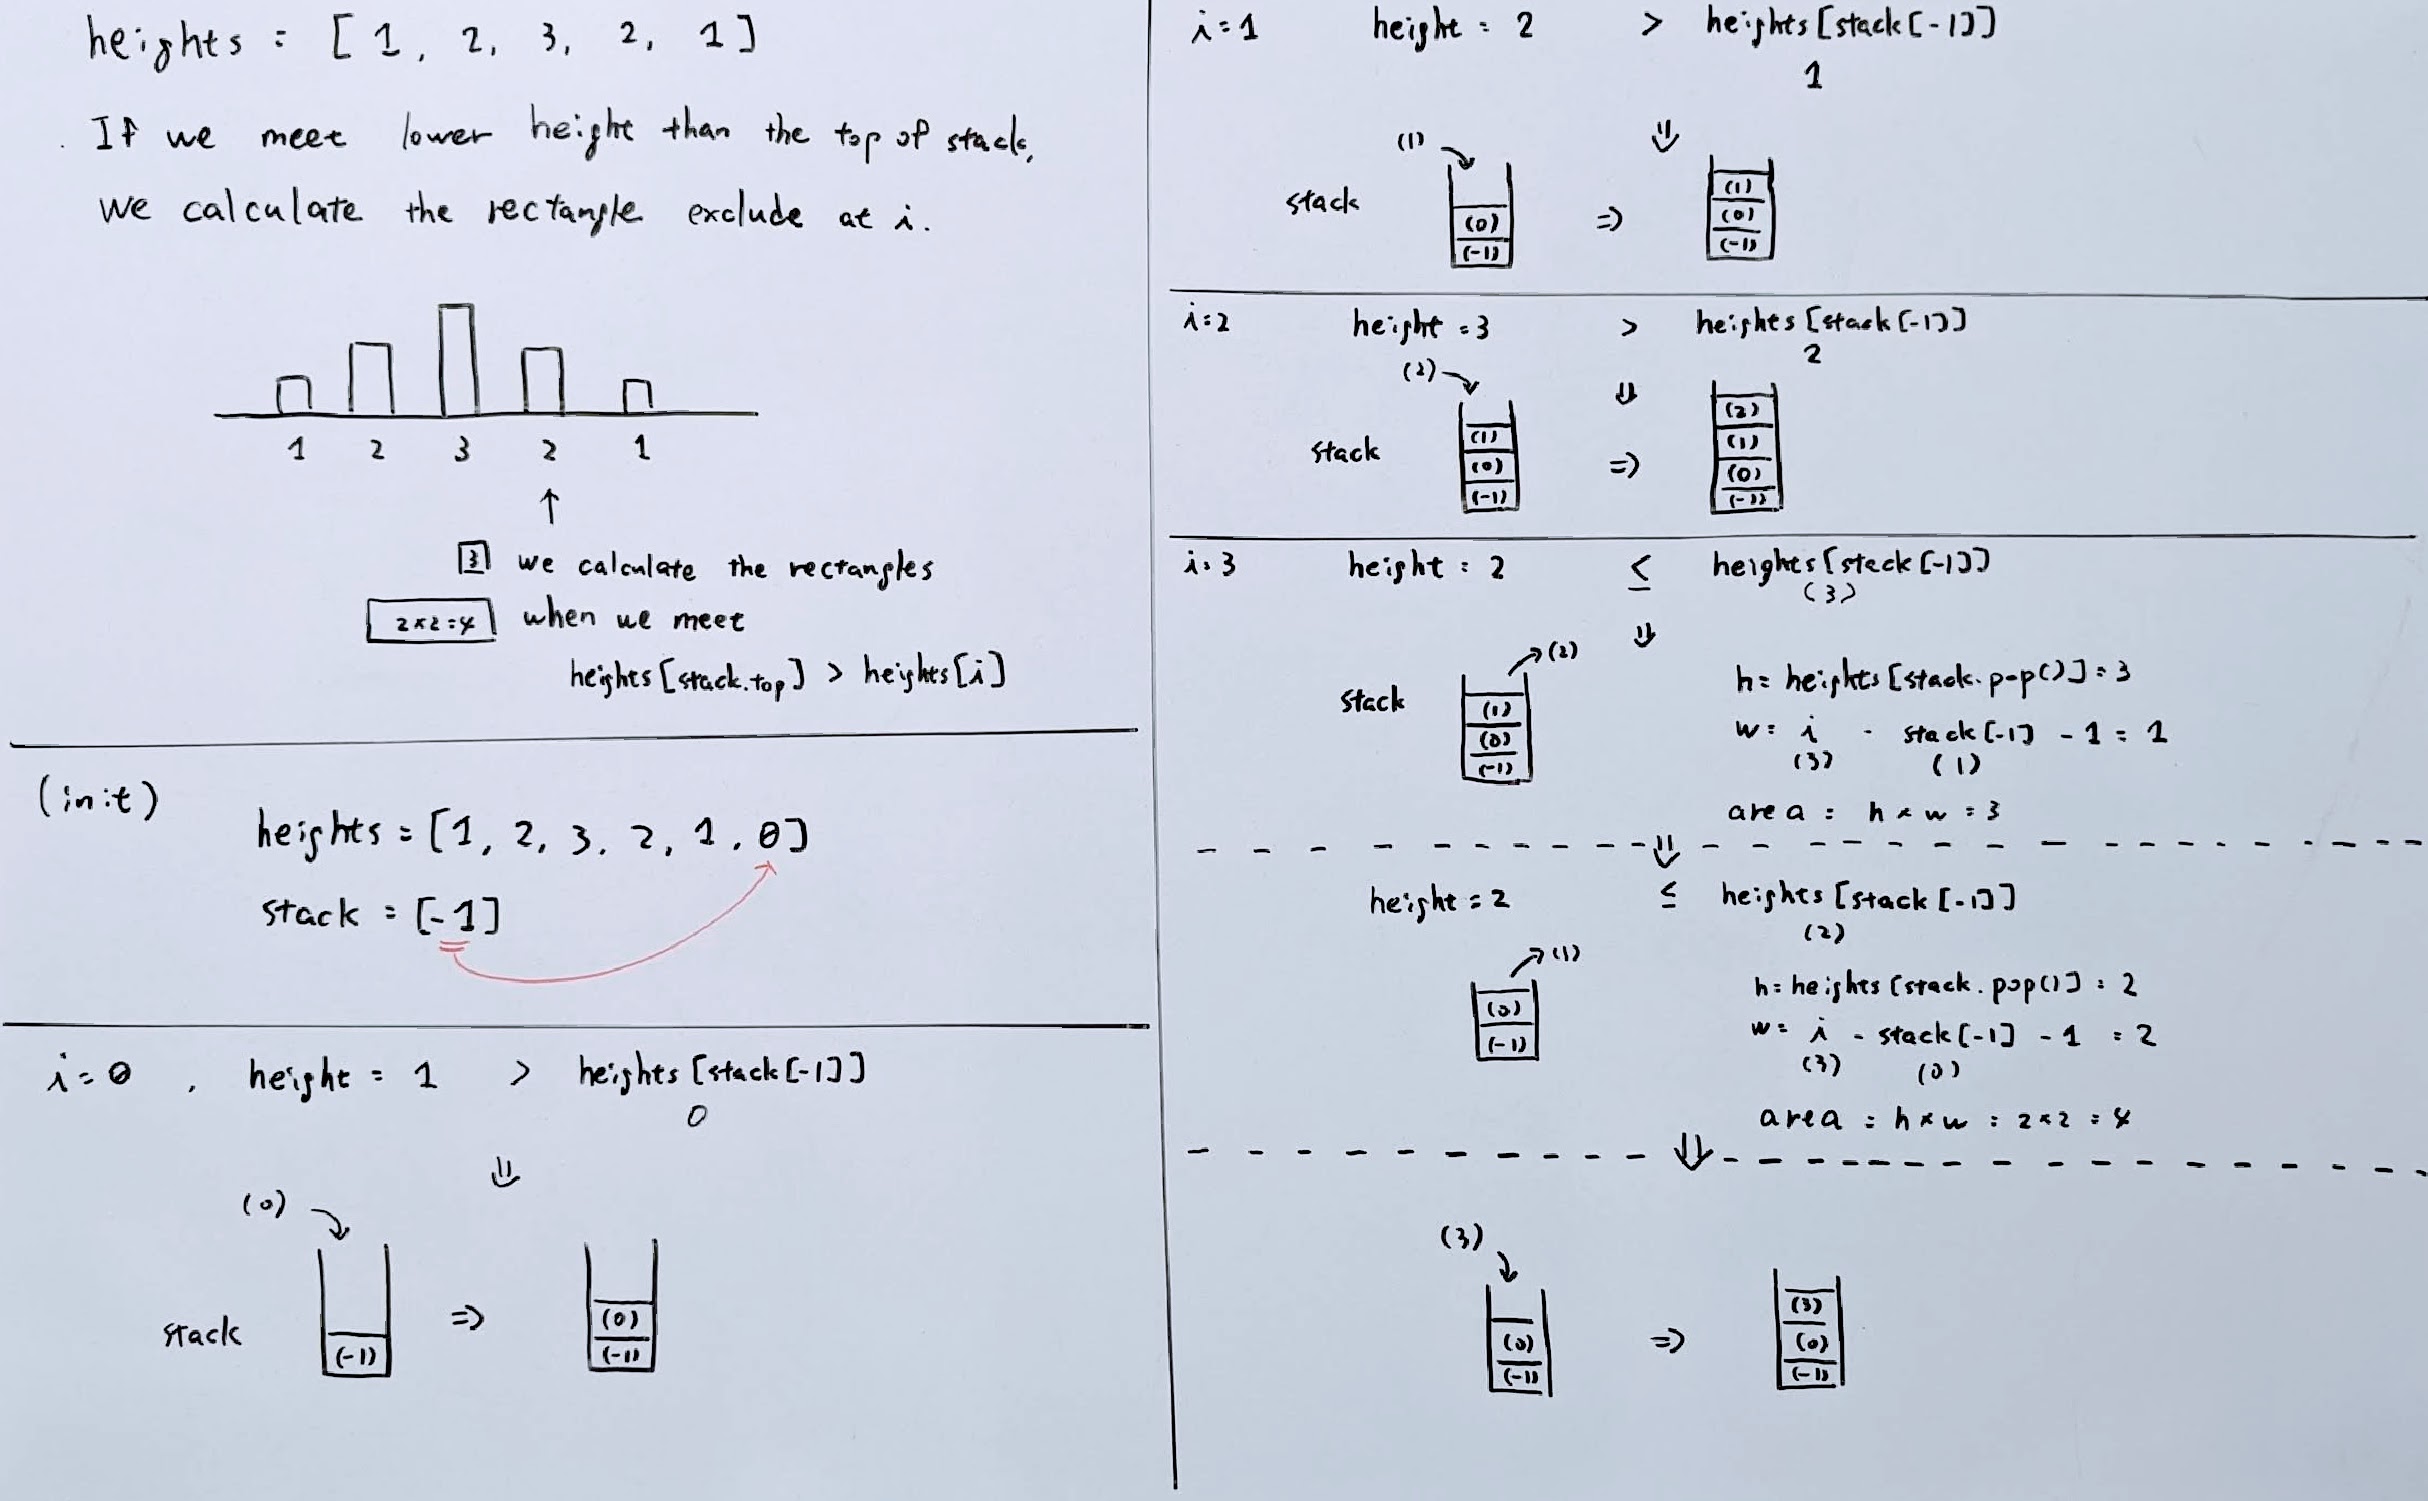 heights = [ 1, 2, 3, 2, 1 ]
If we meet lower height than the top of stack,
we calculate the rectangle exclude at i.
1 2 3 2 1
↑
3 we calculate the rectangles
2×2=4 when we meet
heights[stack.top] > heights[i]
(init)
heights = [1, 2, 3, 2, 1, 0]
stack = [-1]
i=0, height = 1 > heights[stack[-1]]
0
⇓
(0)
stack (-1) ⇒ (0)
(-1)
i=1 height = 2 > heights[stack[-1]]
1
(1) ⇓
stack (0) ⇒ (1)
(-1) (0)
(-1)
i=2 height = 3 > heights[stack[-1]]
2
(2) ⇓
(2)
stack (1) (1)
(0) ⇒ (0)
(-1) (-1)
i=3 height = 2 ≤ heights[stack[-1]]
(3)
⇓
(2)
h = heights[stack.pop()] = 3
stack (1)
(0) w = i - stack[-1] - 1 = 1
(-1) (3) (1)
area = h × w = 3
⇓
height = 2 ≤ heights[stack[-1]]
(2)
(1)
h = heights[stack.pop()] = 2
(0)
(-1) w = i - stack[-1] - 1 = 2
(3) (0)
area = h × w = 2×2 = 4
⇓
(3)
(3)
(0) ⇒ (0)
(-1) (-1)